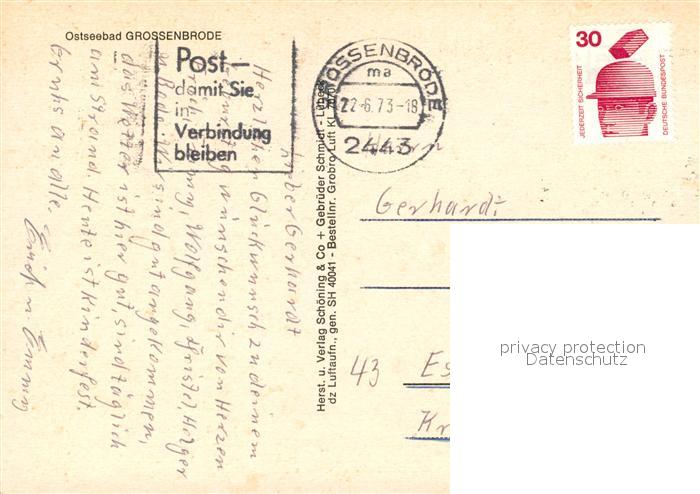 Ostseebad GROSSENBRODE
Post –
damit Sie
in
Verbindung
bleiben
GROSSENBRODE
ma
22.-6.73-18
2443
30
JEDERZEIT SICHERHEIT
DEUTSCHE BUNDESPOST
Lieber Gerhardt
Herzlichen Glückwunsch zu deinem
wünschen dir von Herzen
Wolfgang, Christel, Holger
sind gut angekommen,
das Wetter ist hier gut, sind täglich
am Strand. Heute ist Kinderfest.
Gruß an alle.
Herst. u. Verlag Schöning & Co + Gebrüder Schmidt - Lübeck
dz Luftaufn., gen. SH 40041 - Bestellnr. Grobro Luft KL
Herrn
Gerhardt
43 Es
Kr
privacy protection
Datenschutz